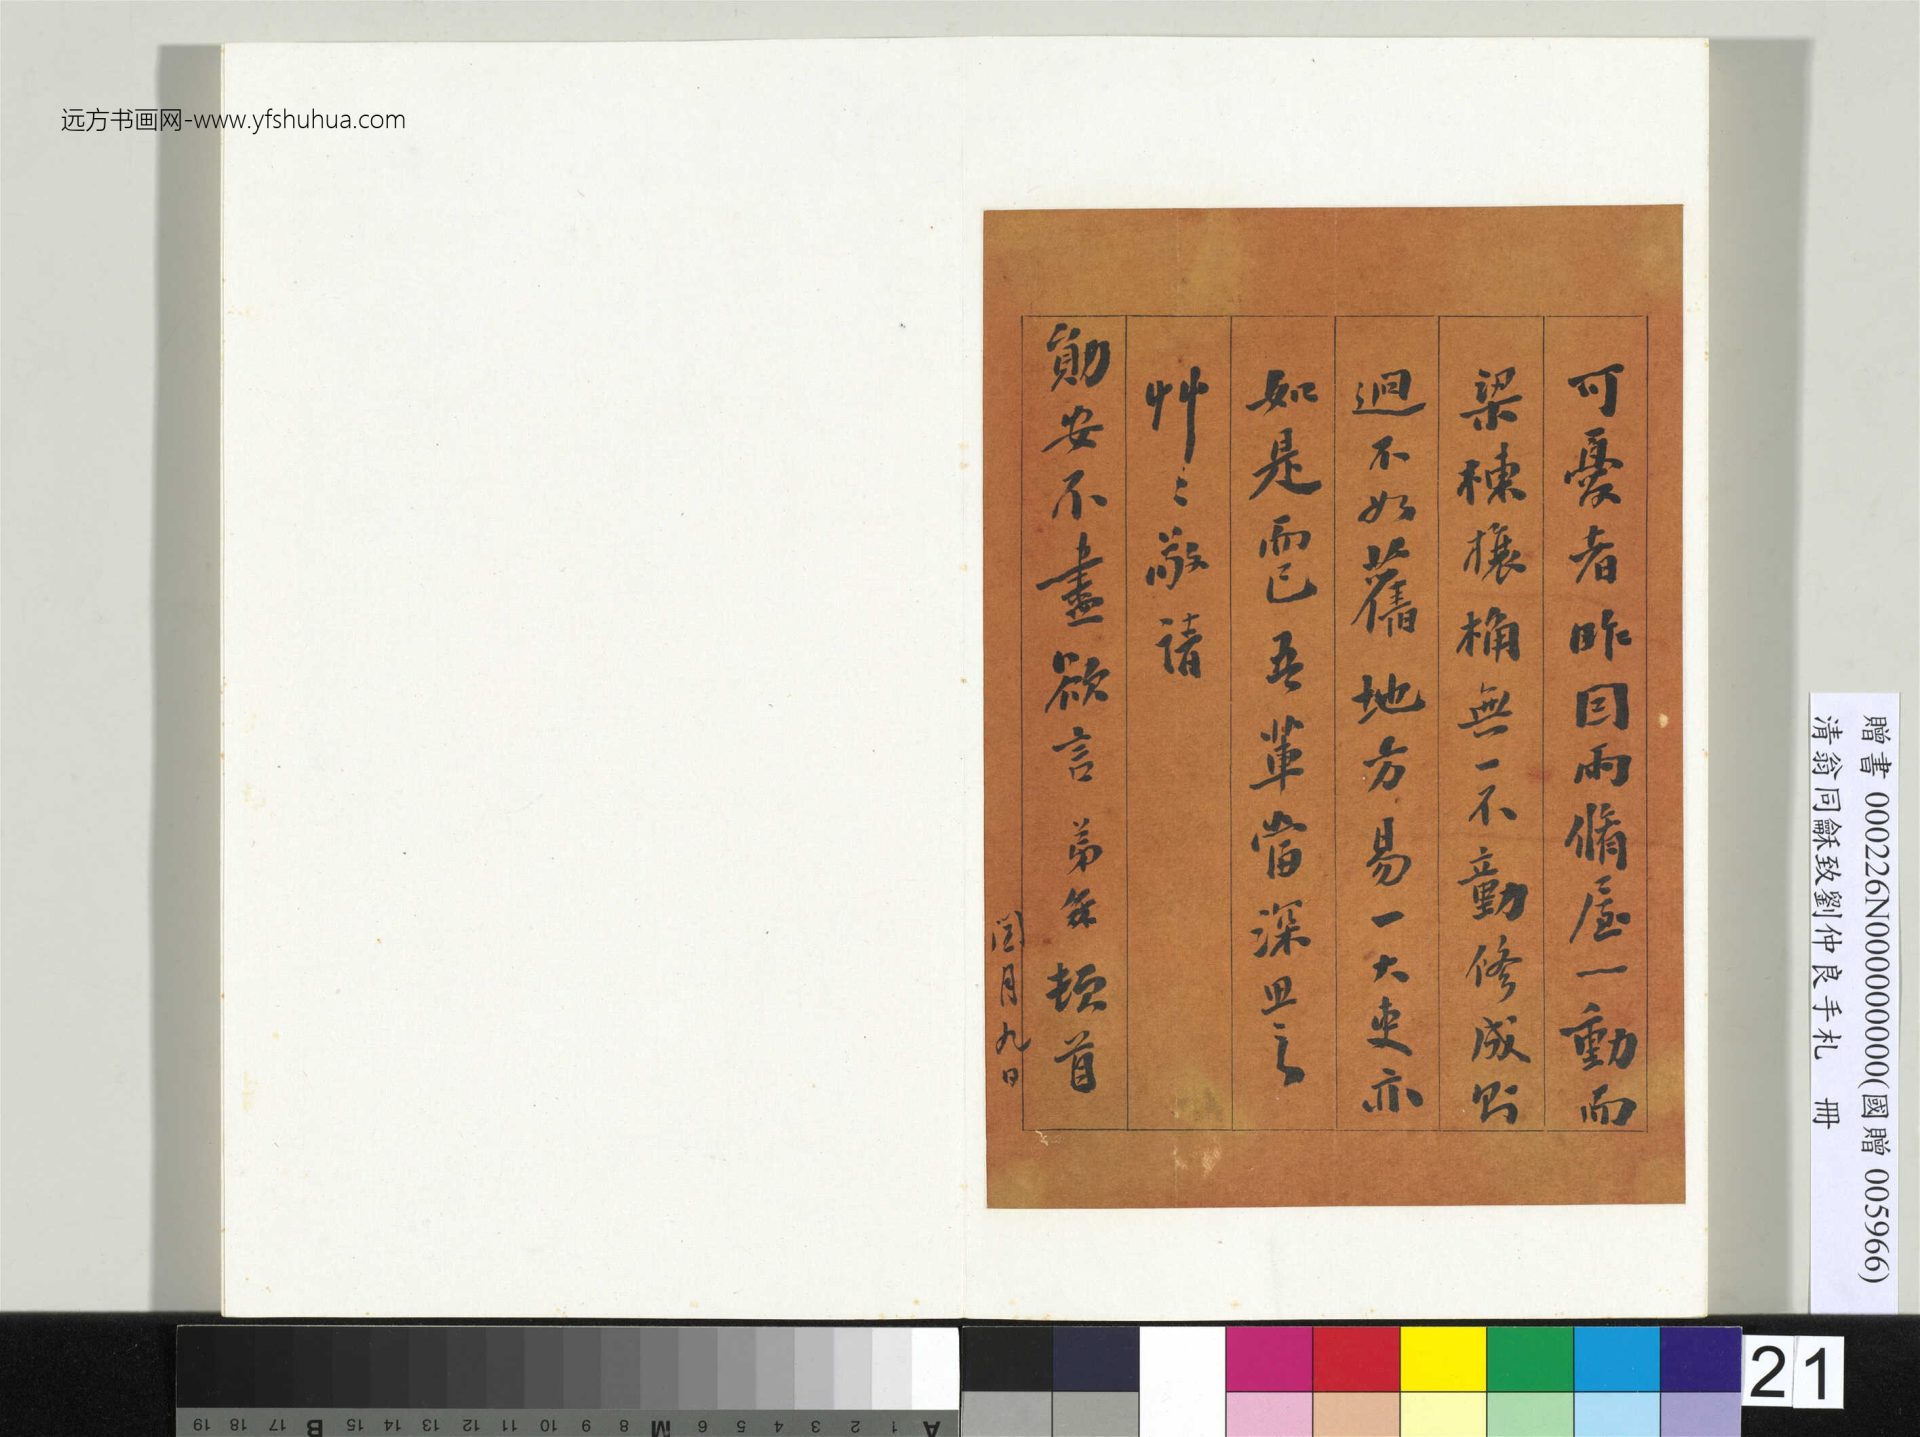 远方书画网-www.yfshuhua.com
可憂者昨因雨脩屋一動而
梁棟榱桷無一不動修成則
迥不如舊地方易一大吏亦
如是而已吾輩當深思之
艸〻敬請
勛安不盡欲言 弟龢頓首
閏月九日
贈書 000226N000000000(國贈 005966)
清翁同龢致劉仲良手札 冊
A 1 2 3 4 5 6 M 8 9 10 11 12 13 14 15 B 17 18 19
21